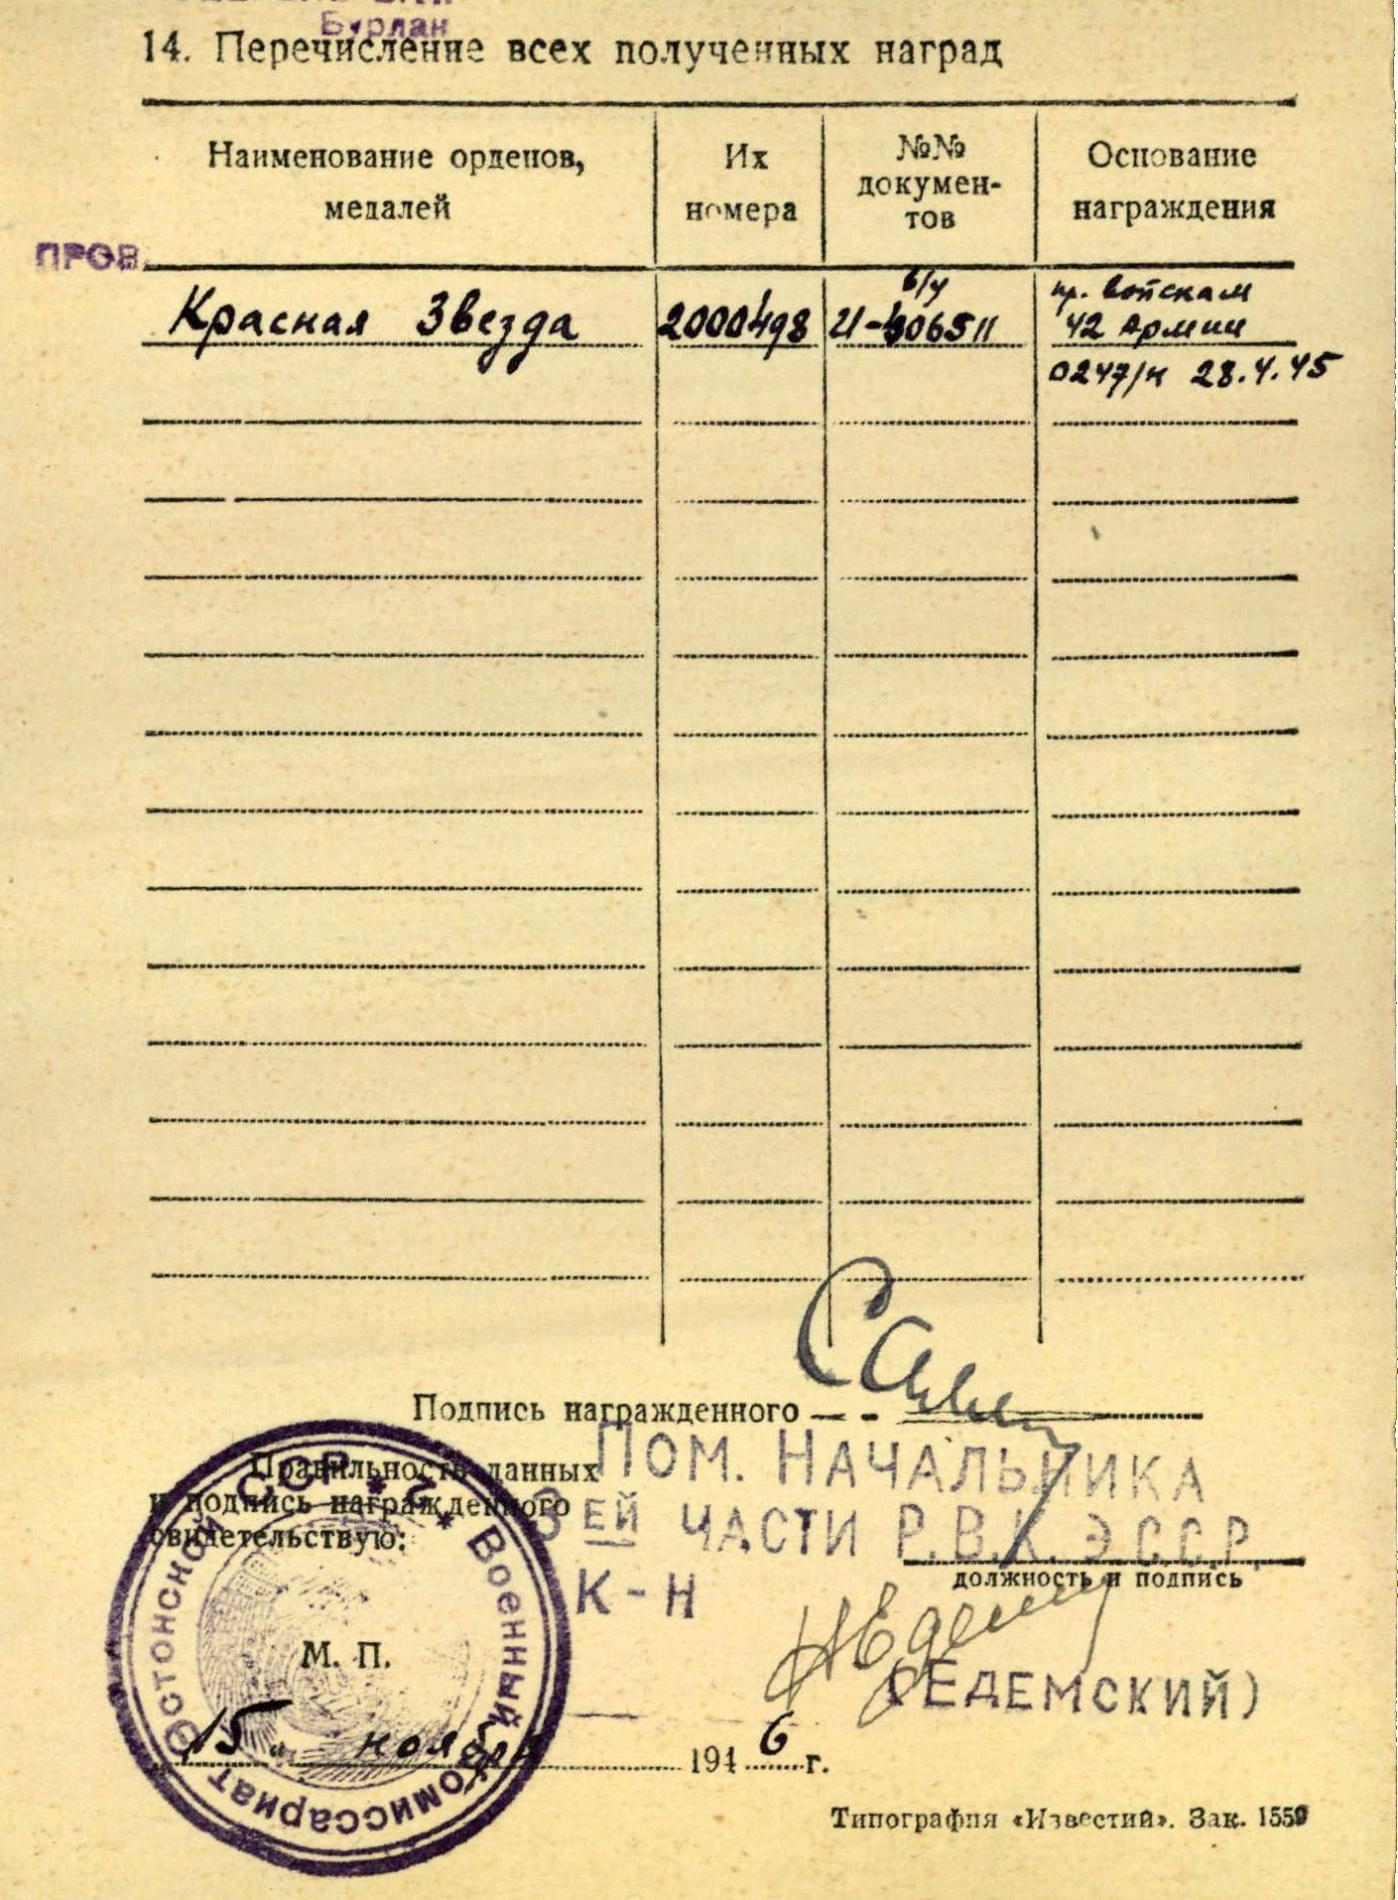 Бурлан
14. Перечисление всех полученных наград
Наименование орденов, медалей
Их номера
№№ документов
Основание награждения
ПРОВ.
Красная Звезда
2000498
б/у
И-406511
пр. войскам
42 Армии
0247/н 28.4.45
Подпись награжденного
Правильность данных
и подпись награжденного
свидетельствую:
Пом. Начальника
3ей части Р.В.К. Э.С.С.Р.
К-н
должность и подпись
(Едемский)
М. П.
Эстонской ССР * Военный Комиссариат
15 ноября 1946 г.
Типография «Известий». Зак. 1559